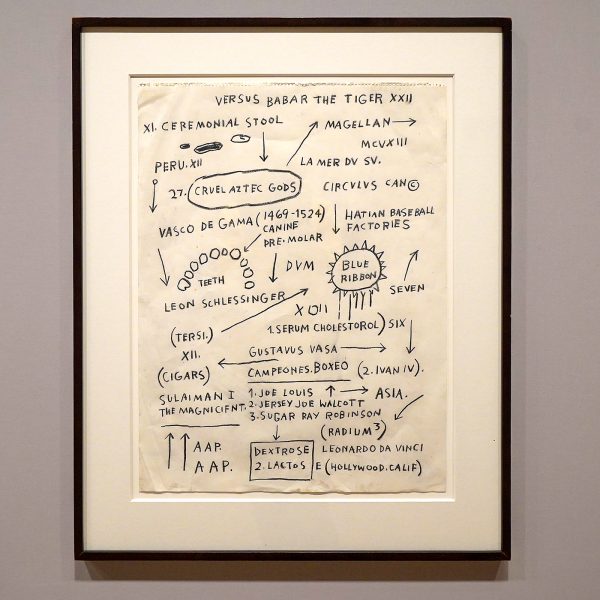 VERSUS BABAR THE TIGER XXII
XI. CEREMONIAL STOOL
MAGELLAN
MCVXIII
PERU. XII
LA MER DV SV.
27. CRUEL AZTEC GODS
CIRCVLVS CAN©
VASCO DE GAMA (1469-1524)
CANINE
PRE-MOLAR
HATIAN BASEBALL
FACTORIES
TEETH
DVM
BLUE
RIBBON
LEON SCHLESSINGER
SEVEN
1. SERUM CHOLESTOROL) SIX
(TERSI.)
XII.
(CIGARS)
GUSTAVUS VASA
CAMPEONES. BOXEO
(2. IVAN IV).
SULAIMAN I
THE MAGNICIENT.
1. JOE LOUIS
2. JERSEY JOE WALCOTT
3. SUGAR RAY ROBINSON
ASIA.
(RADIUM³)
AAP.
AAP.
DEXTROSE
2. LACTOS E
LEONARDO DA VINCI
(HOLLYWOOD. CALIF)